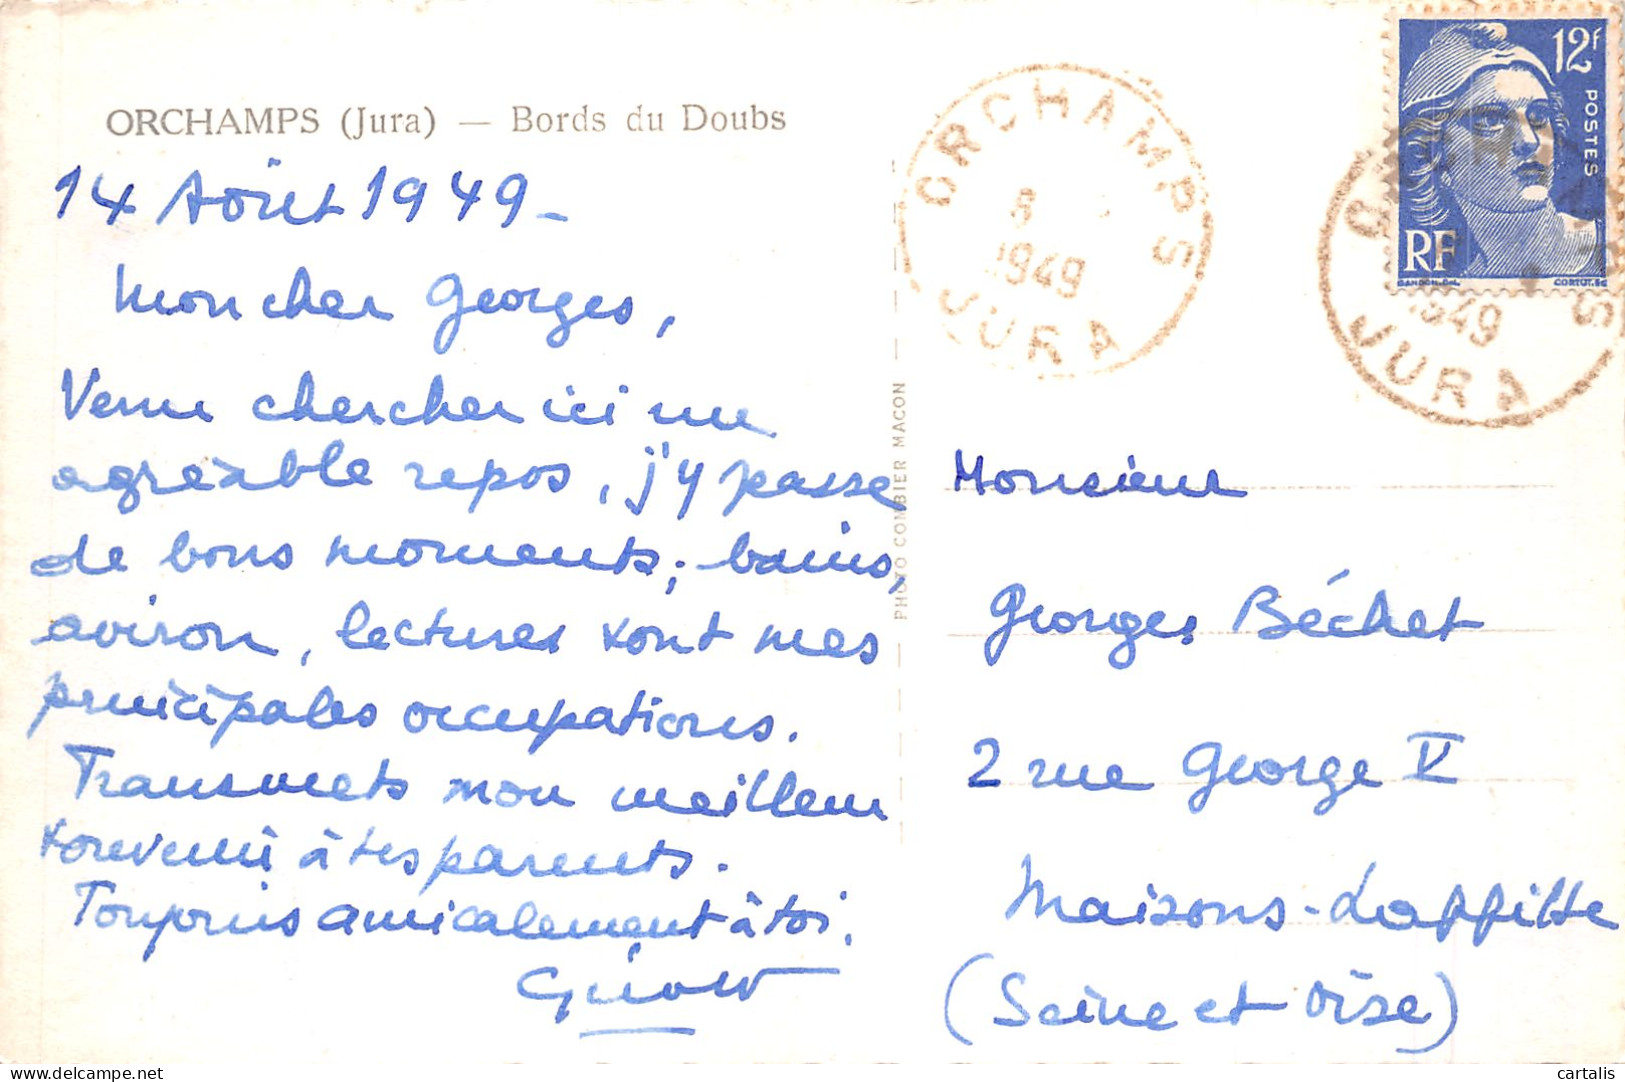 ORCHAMPS (Jura) — Bords du Doubs
14 Août 1949 –
Mon cher Georges,
Venu chercher ici un
agréable repos, j'y passe
de bons moments; bains,
aviron, lectures sont mes
principales occupations.
Transmets mon meilleur
souvenir à tes parents.
Toujours amicalement à toi.
PHOTO COMBIER MACON
ORCHAMPS
8
1949
JURA
12F
POSTES
RF
GANDON.DEL.
CORTOT.SC
ORCHAMPS
1949
JURA
Monsieur
Georges Béchet
2 rue George V
Maisons-Laffitte
(Seine et Oise)
delcampe.net
cartalis